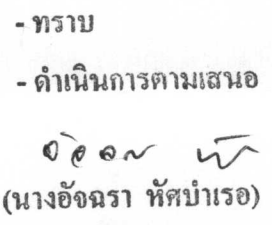 - ทราบ
- ดำเนินการตามเสนอ
(นางอัจฉรา หัศบำเรอ)